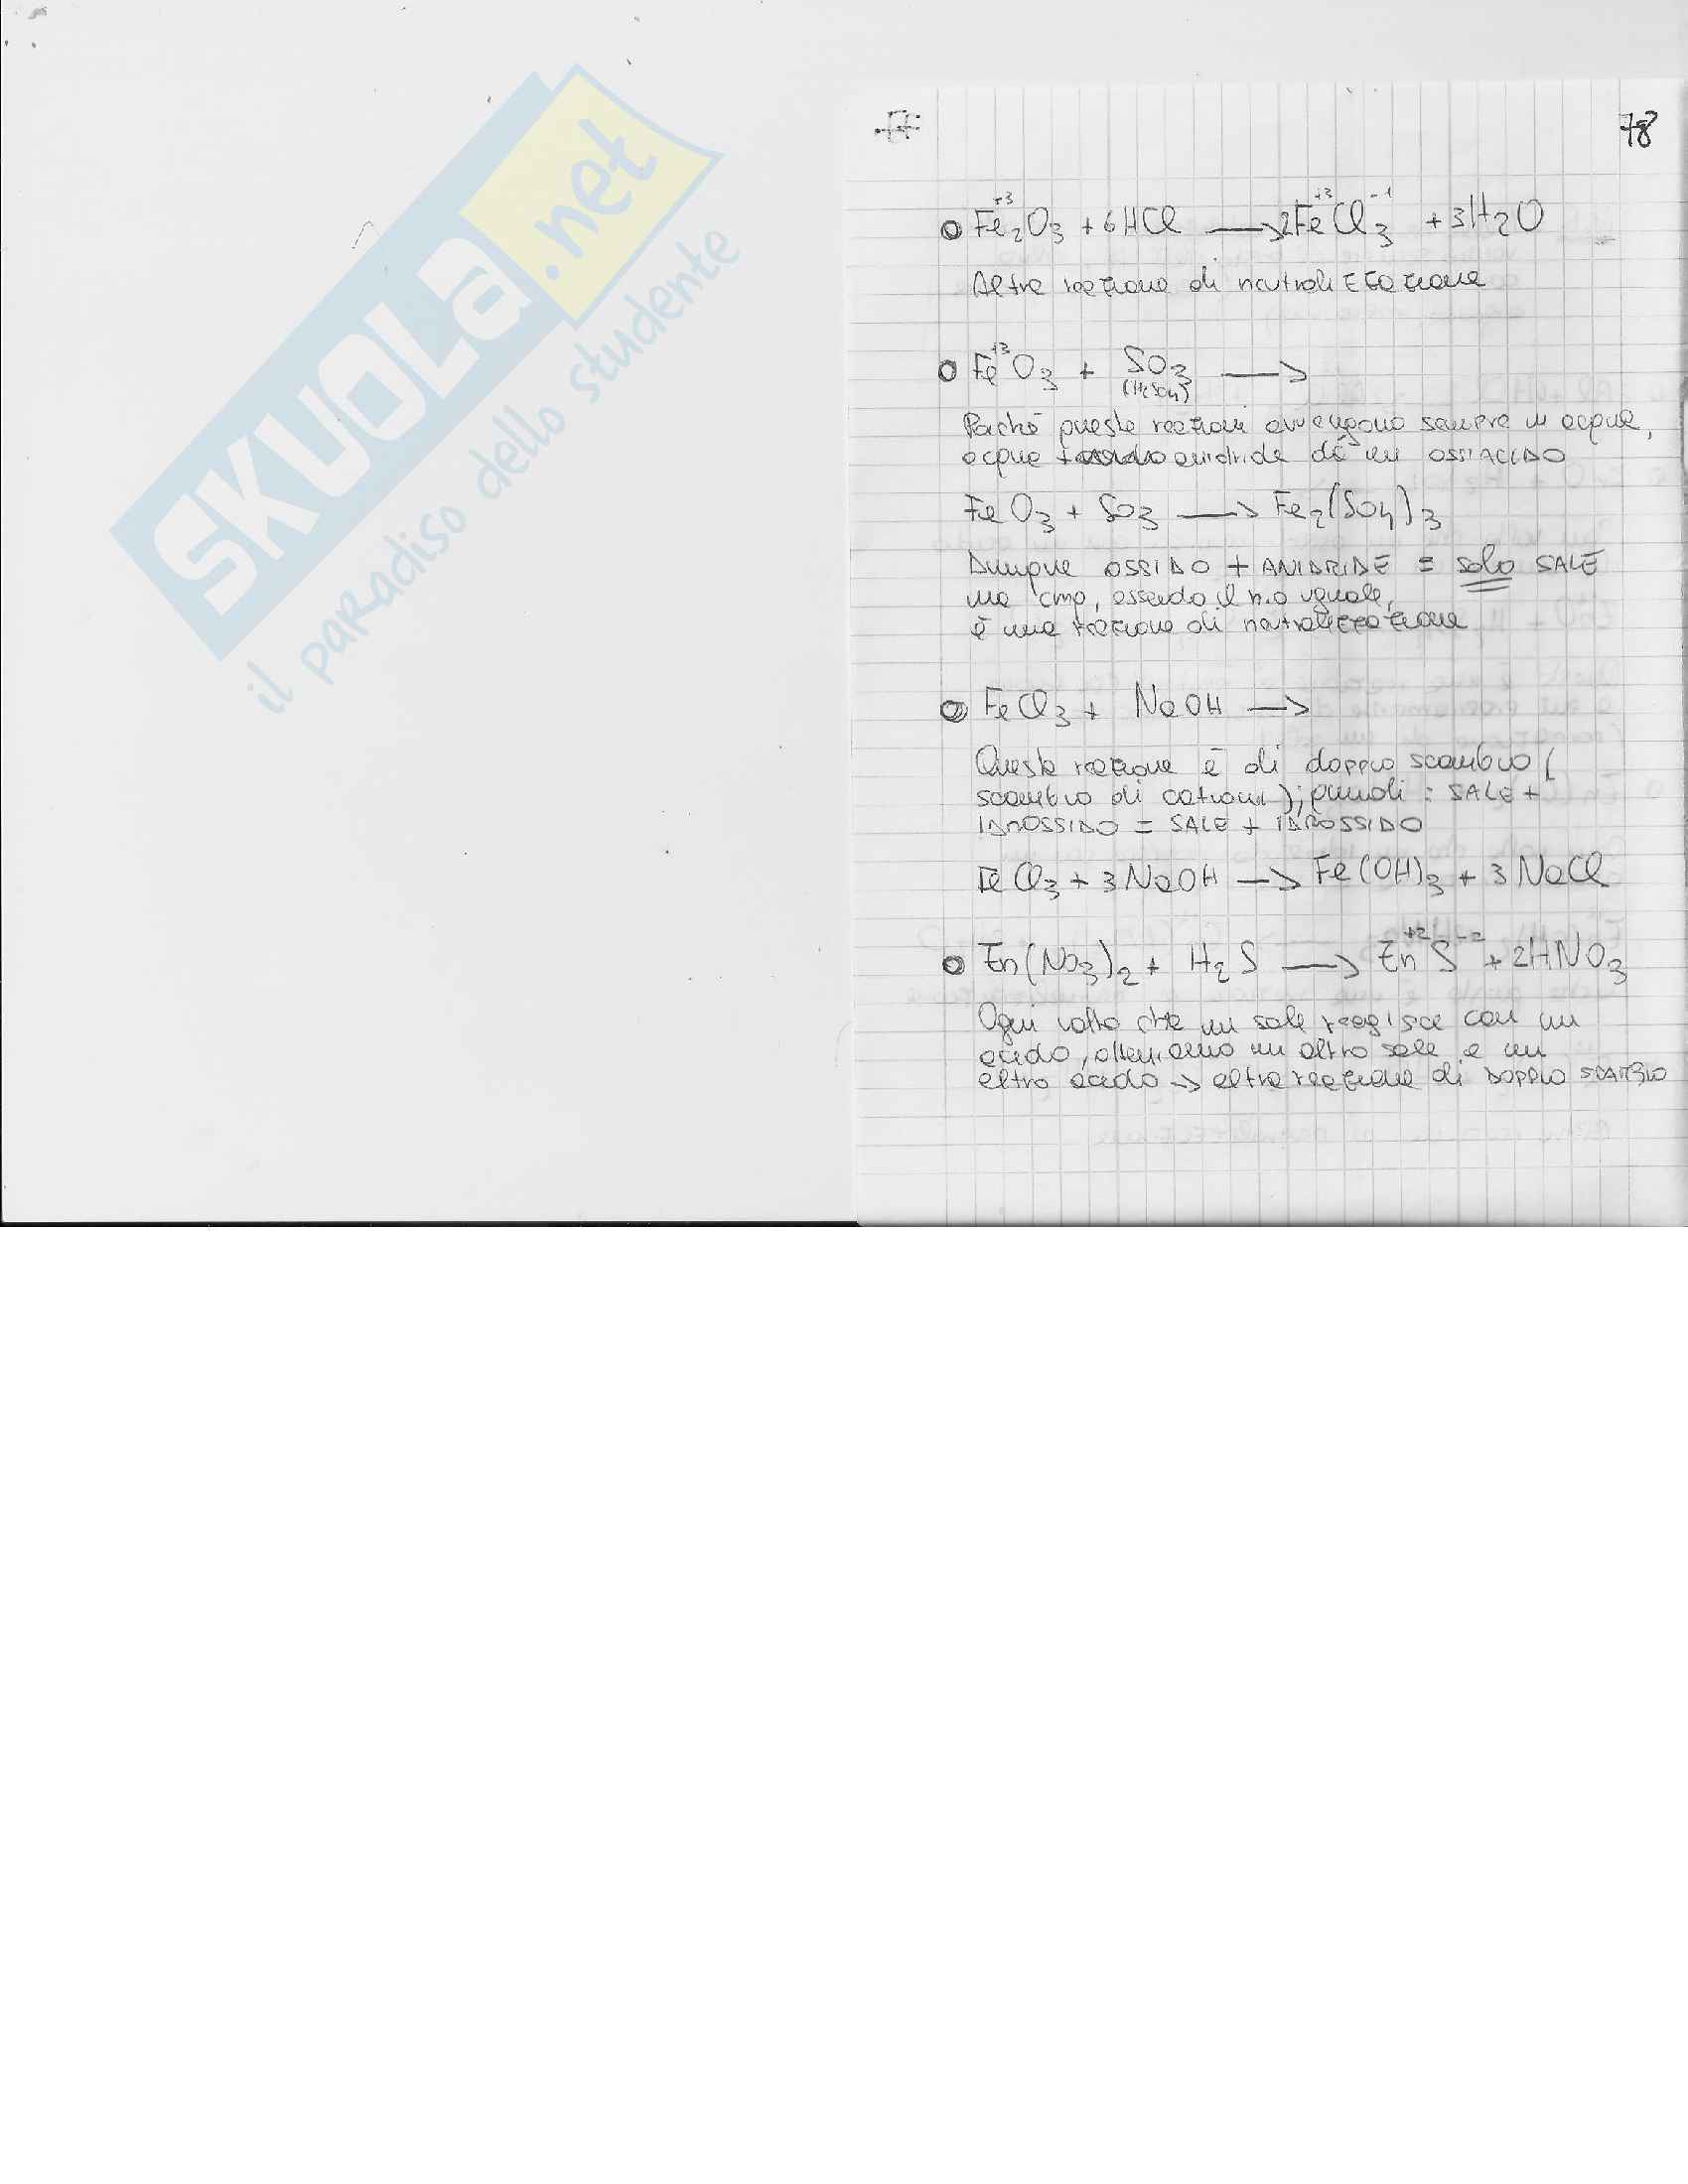 SKUOLA.net
il paradiso dello studente
78
Fe₂⁺³O₃ + 6HCl → 2Fe⁺³Cl₃⁻¹ + 3H₂O
Altra reazione di neutralizzazione
Fe⁺³O₃ + SO₃ →
(H₂SO₄)
Poiché queste reazioni avvengono sempre in acqua,
acqua + anidride dà un OSSIACIDO
FeO₃ + SO₃ → Fe₂(SO₄)₃
Dunque OSSIDO + ANIDRIDE = solo SALE
ma cmq, essendo il n.o uguale,
è una reazione di neutralizzazione
FeCl₃ + NaOH →
Questa reazione è di doppio scambio (
scambio di cationi); quindi: SALE +
IDROSSIDO = SALE + IDROSSIDO
FeCl₃ + 3NaOH → Fe(OH)₃ + 3NaCl
Zn(NO₃)₂ + H₂S → Zn⁺²S⁻² + 2HNO₃
Ogni volta che un sale reagisce con un
acido, otteniamo un altro sale e un
altro acido → altra reazione di DOPPIO SCAMBIO